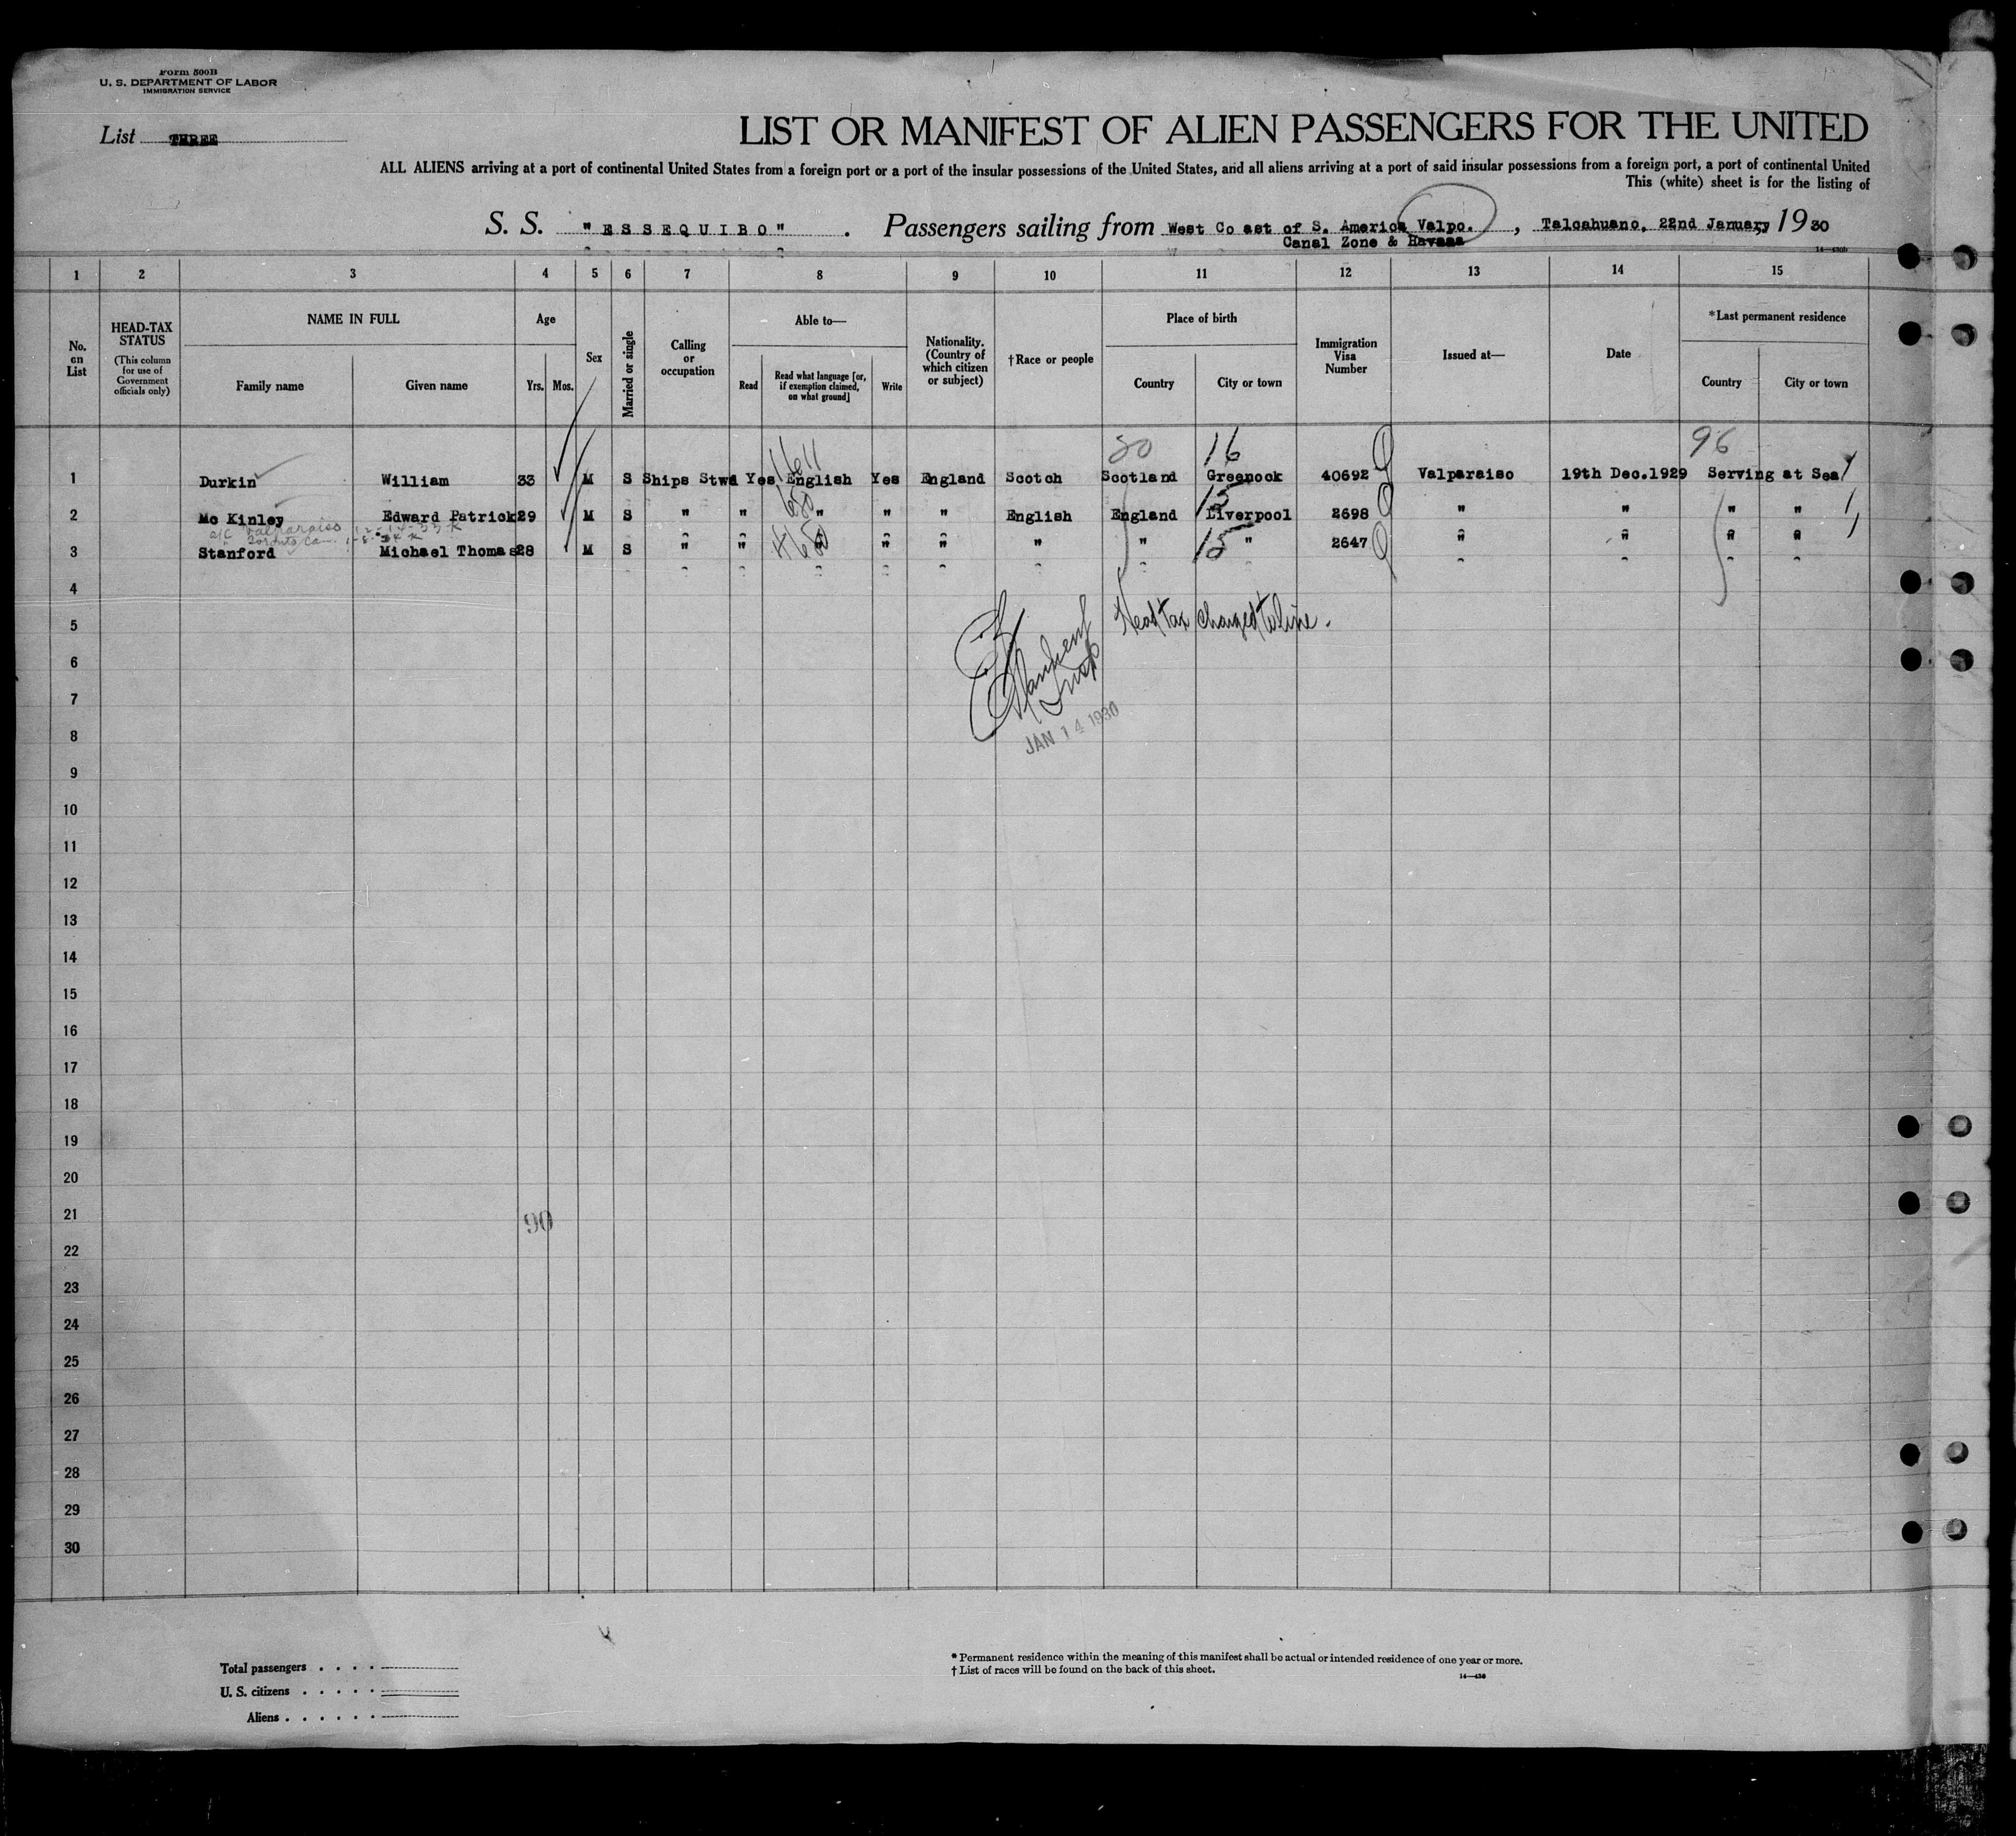 Form 500B
U. S. DEPARTMENT OF LABOR
IMMIGRATION SERVICE
List THREE
LIST OR MANIFEST OF ALIEN PASSENGERS FOR THE UNITED
ALL ALIENS arriving at a port of continental United States from a foreign port or a port of the insular possessions of the United States, and all aliens arriving at a port of said insular possessions from a foreign port, a port of continental United
This (white) sheet is for the listing of
S. S. "ESSEQUIBO" . Passengers sailing from West Co ast of S. America Valpo. , Talcahuano, 22nd January 19 30
Canal Zone & Havana
14—430b
1 2 3 4 5 6 7 8 9 10 11 12 13 14 15
No. on List
HEAD-TAX STATUS
(This column for use of Government officials only)
NAME IN FULL
Family name
Given name
Age
Yrs.
Mos.
Sex
Married or single
Calling or occupation
Able to—
Read
Read what language [or, if exemption claimed, on what ground]
Write
Nationality. (Country of which citizen or subject)
†Race or people
Place of birth
Country
City or town
Immigration Visa Number
Issued at—
Date
*Last permanent residence
Country
City or town
20 16 96
1 Durkin William 33 M S Ships Stwd Yes English Yes England Scotch Scotland Greenock 40692 Valparaiso 19th Dec.1929 Serving at Sea
15
2 Mc Kinley Edward Patrick 29 M S " " " " " English England Liverpool 2698 " " " "
Valparaiso
Toronto Can.
15
3 Stanford Michael Thomas 28 M S " " " " " " " " 2647 " " " "
4
5
Head tax charged to line.
6
7
8
JAN 14 1930
9
10
11
12
13
14
15
16
17
18
19
20
21
90
22
23
24
25
26
27
28
29
30
Total passengers . . . .
U. S. citizens . . . . .
Aliens . . . . . .
* Permanent residence within the meaning of this manifest shall be actual or intended residence of one year or more.
† List of races will be found on the back of this sheet.
14—430